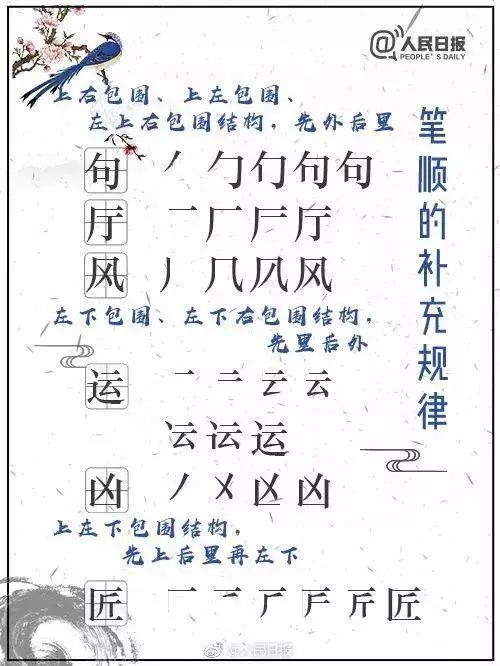 @人民日报
PEOPLE'S DAILY
笔顺的补充规律
上右包围、上左包围、
左上右包围结构，先外后里
句 丿 勹 勹 句 句
厅 一 厂 厂 厅
风 丿 几 风 风
左下包围、左下右包围结构，
先里后外
运 一 二 云 云
云 运 运
凶 丿 乂 凶 凶
上左下包围结构，
先上后里再左下
匠 一 二 斤 匠
@人民日报